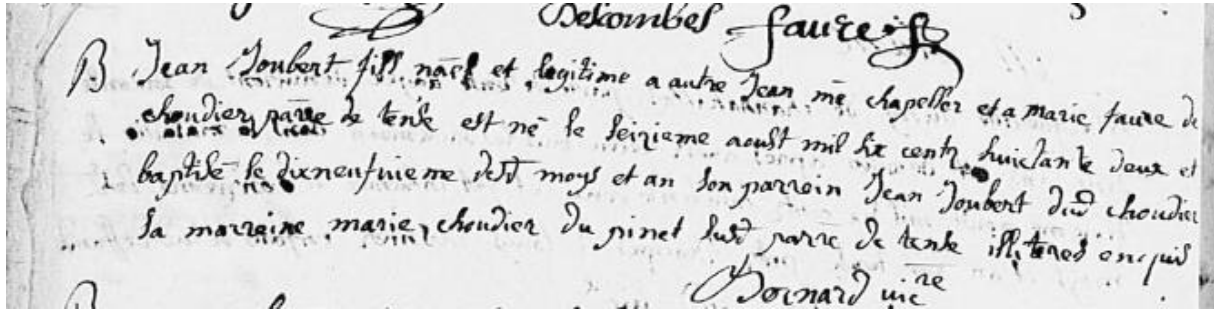 Descombes faure
B Jean Joubert fils nael et legitime a autre Jean me chapeller et a marie faure de
choudier parre de tense est né le seizieme aoust mil six centz huictante deux et
baptisé le dixneufuieme dud moys et an son parrein Jean Joubert dud choudier
sa marreine marie choudier du pinet susd parre de tense illiteres enquis
Bernard vicre